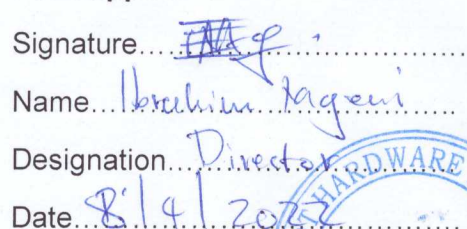 Signature
Name Ibrahim
Designation Director
Date 8/4/2022
HARDWARE